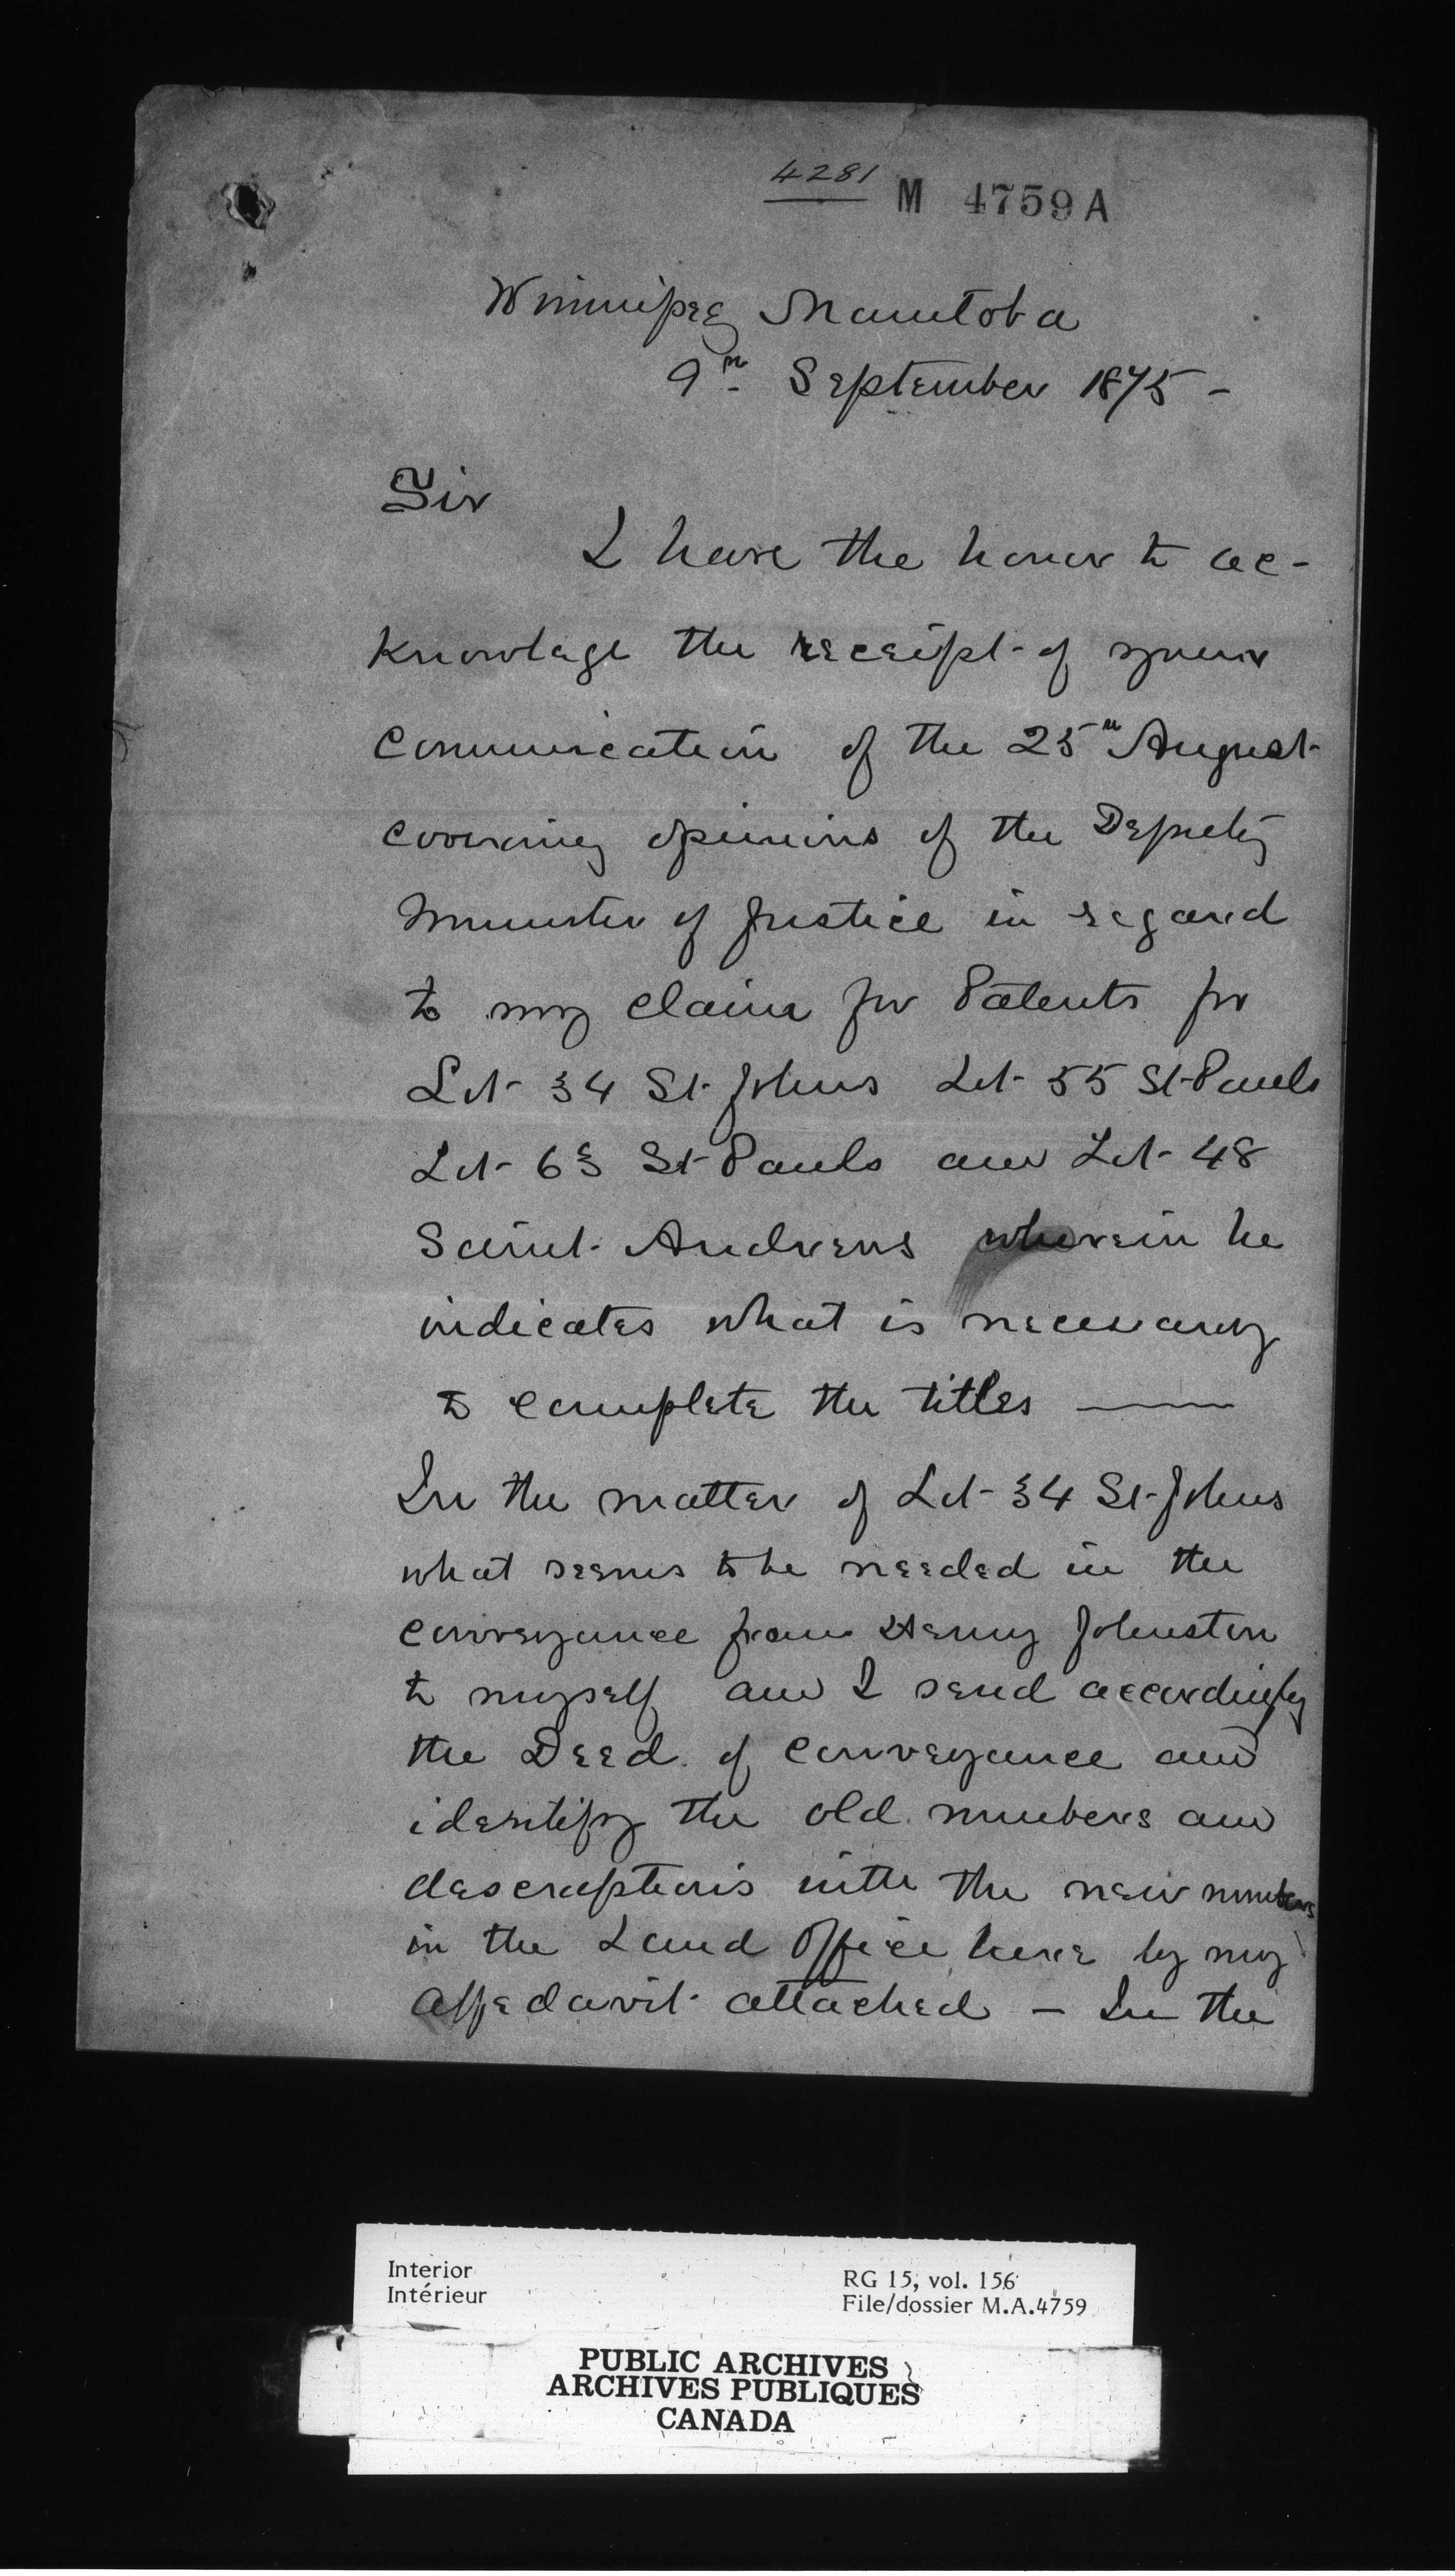 4281 M 4759 A
Winnipeg Manitoba
9th September 1875 -
Sir
I have the honor to ac-
knowlege the receipt of your
communication of the 25th August
covering opinions of the Deputy
Minister of Justice in regard
to my claim for Patents for
Lot 34 St Johns Lot 55 St Pauls
Lot 63 St Pauls and Lot 48
Saint Andrews wherein he
indicates what is necessary
to complete the titles ———
In the matter of Lot 34 St Johns
what seems to be needed is the
conveyance from Henry Johnston
to myself and I send accordingly
the Deed of conveyance and
identify the old numbers and
descriptions with the new numbers
in the Land Office here by my
affedavit attached - In the
Interior
Intérieur
RG 15, vol. 156
File/dossier M.A.4759
PUBLIC ARCHIVES
ARCHIVES PUBLIQUES
CANADA